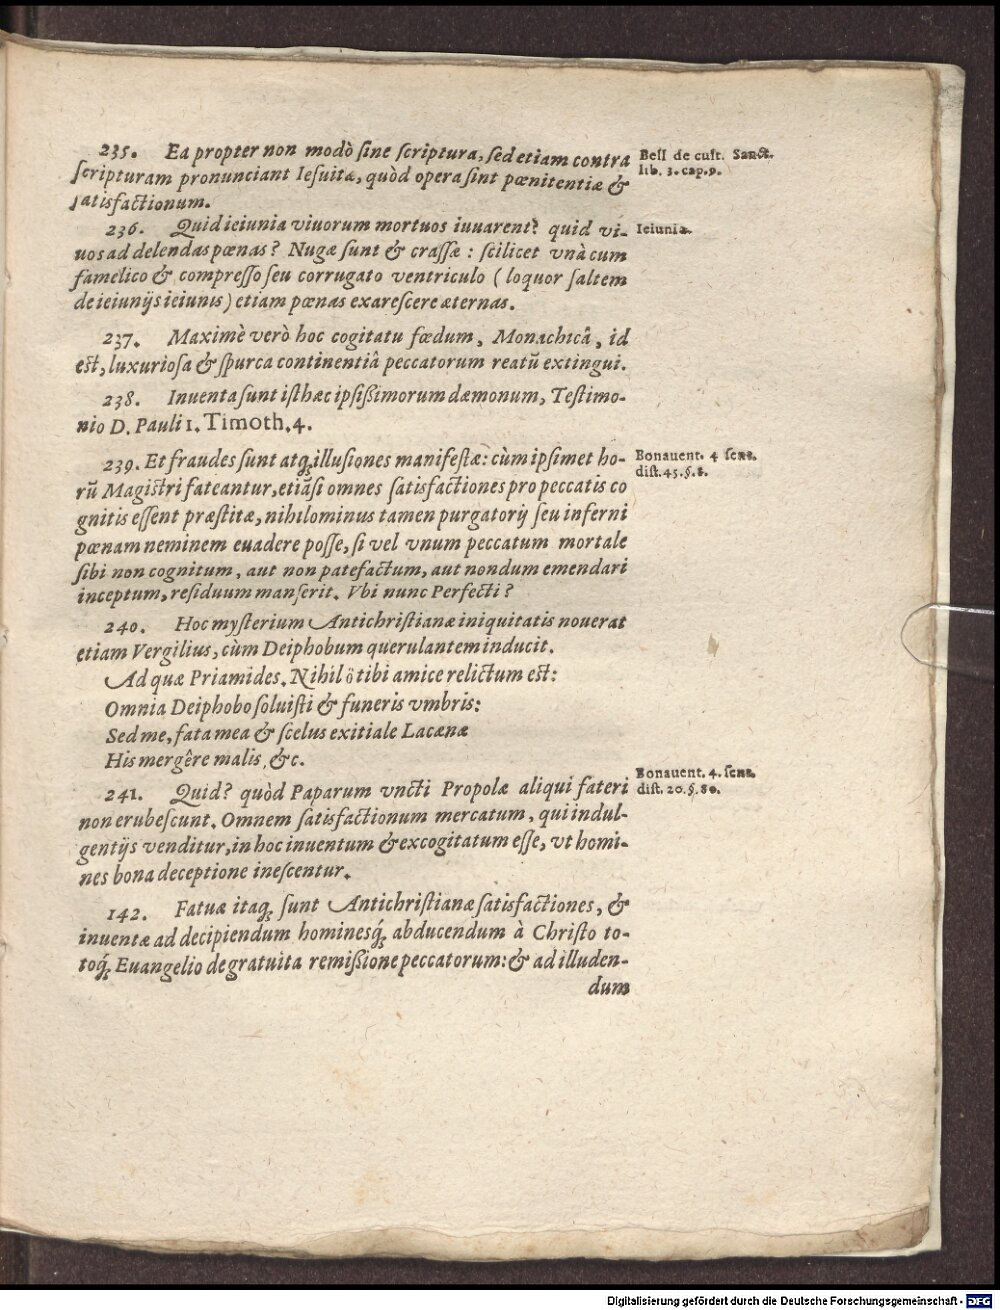 235. Ea propter non modò sine scriptura, sed etiam contra
scripturam pronunciant Iesuitæ, quòd opera sint pœnitentiæ &
satisfactionum.
Bell de cult. Sanct.
lib. 3. cap. 9.
236. Quid ieiunia viuorum mortuos iuuarent? quid vi-
uos ad delendas pœnas? Nugæ sunt & crassæ: scilicet vnà cum
famelico & compresso seu corrugato ventriculo (loquor saltem
de ieiunijs ieiunis) etiam pœnas exarescere æternas.
Ieiunia.
237. Maximè verò hoc cogitatu fœdum, Monachicâ, id
est, luxuriosa & spurca continentiâ peccatorum reatũ extingui.
238. Inuenta sunt isthæc ipsißimorum dæmonum, Testimo-
nio D. Pauli 1. Timoth. 4.
239. Et fraudes sunt atq; illusiones manifestæ: cùm ipsimet ho-
rũ Magistri fateantur, etiãsi omnes satisfactiones pro peccatis co
gnitis essent præstitæ, nihilominus tamen purgatorij seu inferni
pœnam neminem euadere posse, si vel vnum peccatum mortale
sibi non cognitum, aut non patefactum, aut nondum emendari
inceptum, residuum manserit. Vbi nunc Perfecti?
Bonauent. 4 sent.
dist. 45. §. 8.
240. Hoc mysterium Antichristianæ iniquitatis nouerat
etiam Vergilius, cùm Deiphobum querulantem inducit.
Ad quæ Priamides. Nihil ô tibi amice relictum est:
Omnia Deiphobo soluisti & funeris vmbris:
Sed me, fata mea & scelus exitiale Lacænæ
His mergêre malis, &c.
241. Quid? quòd Paparum vncti Propolæ aliqui fateri
non erubescunt. Omnem satisfactionum mercatum, qui indul-
gentijs venditur, in hoc inuentum & excogitatum esse, vt homi-
nes bona deceptione inescentur.
Bonauent. 4. sent.
dist. 20. §. 80.
142. Fatuæ itaq; sunt Antichristianæ satisfactiones, &
inuentæ ad decipiendum hominesq́; abducendum à Christo to-
toq́; Euangelio de gratuita remißione peccatorum: & ad illuden-
dum
Digitalisierung gefördert durch die Deutsche Forschungsgemeinschaft - DFG